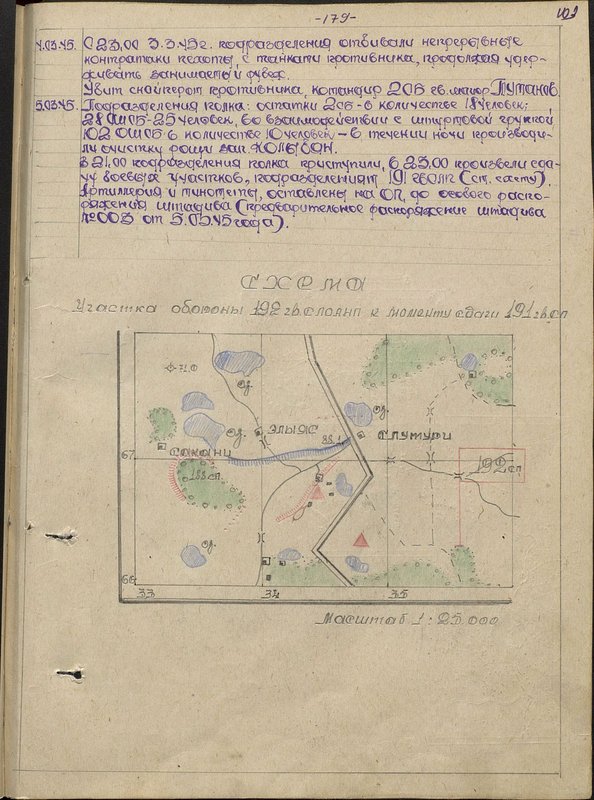 -179-
4.03.45. С 23.00 3.3.45г. подразделения отбивали непрерывные
контратаки пехоты, с танками противника, продолжая удер-
живать занимаемый рубеж.
Убит снайпером противника, командир 2СБ гв.майор ТУМАНОВ.
5.03.45. Подразделения полка: остатки 2сб-в количестве 18 человек;
28 ОШСБ-25 человек, во взаимодействии с штурмовой группой
102 ОШСБ в количестве 10 человек - в течении ночи производи-
ли очистку рощи зап.
В 21.00 подразделения полка приступили, в 23.00 произвели сда-
чу боевых участков, подразделениям 191 гвСЛП (см. схему).
Артиллерия и минометы, оставлены на ОП, до особого распо-
ряжения штадива (предварительное распоряжение штадива
№ 003 от 5.03.45 года).
СХЕМА
Участка обороны 192 гв к моменту сдачи 191 гв.сп
Оз.
Оз.
ЭЛЬЯС
Оз.
88.1
СЛУТУРИ
67
САКАНИ
188 сп
192 сп
Оз.
66
33
34
35
Масштаб 1:25 000